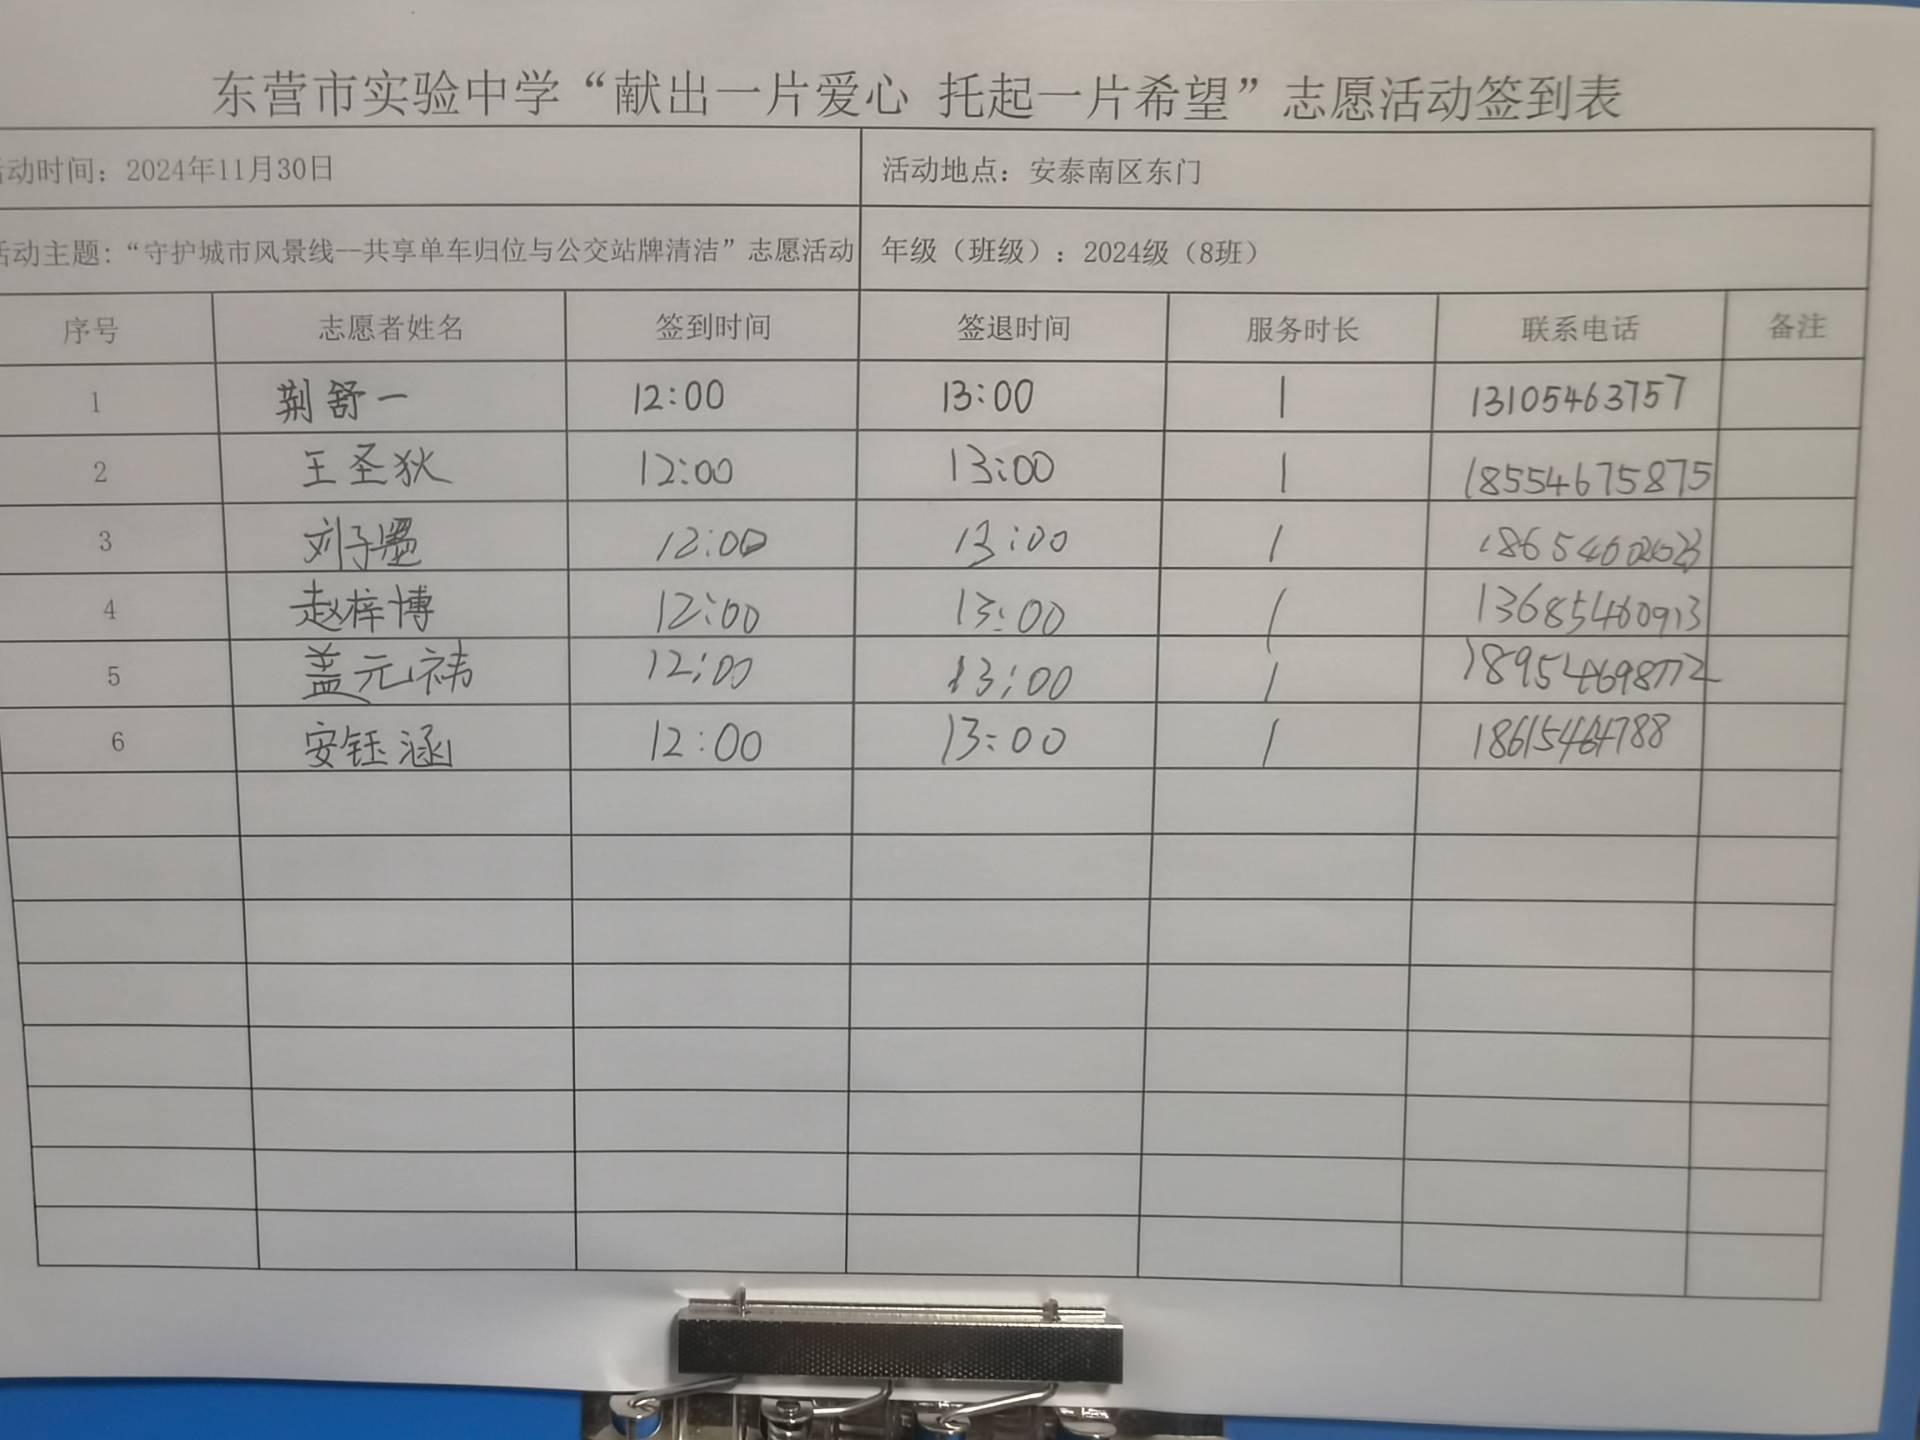 东营市实验中学“献出一片爱心 托起一片希望”志愿活动签到表
活动时间：2024年11月30日 活动地点：安泰南区东门
活动主题:“守护城市风景线--共享单车归位与公交站牌清洁”志愿活动 年级（班级）：2024级（8班）
序号 志愿者姓名 签到时间 签退时间 服务时长 联系电话 备注
1 荆舒一 12:00 13:00 1 13105463757
2 王圣狄 12:00 13:00 1 18554675875
3 12:00 13:00 1
4 赵梓博 12:00 13:00 1 13685460913
5 盖元祎 12:00 13:00 1 18954698772
6 安钰涵 12:00 13:00 1